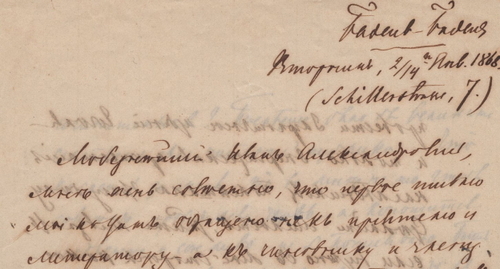 Баденъ-Баденъ
Вторникъ, 2/14го Янв. 1868.
(Schillerstrasse, 7.)
Любезнѣйшій Иванъ Александровичъ,
мнѣ очень совѣстно, что первое письмо
мое къ Вамъ обращено не къ пріятелю и
литератору – а къ чиновнику и